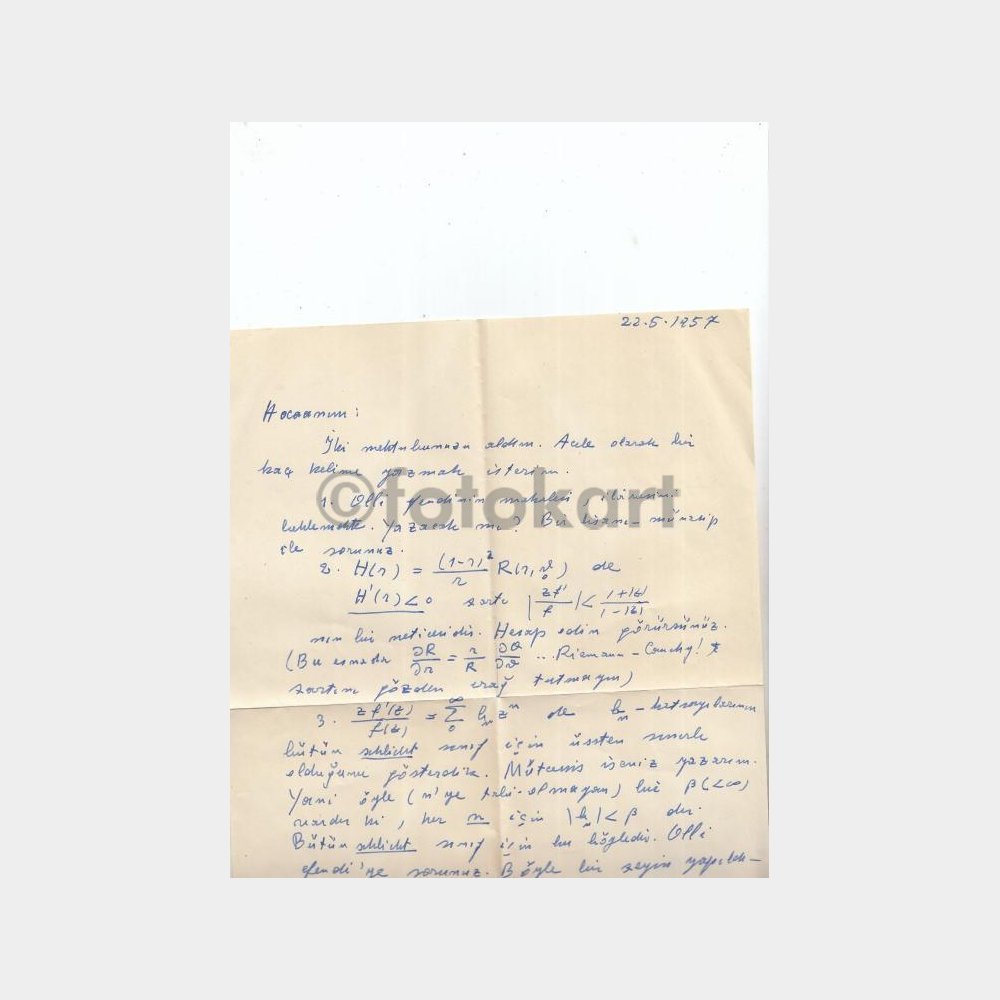 22.5.1957
Hocaanım:
İki mektubunuzu aldım. Acele olarak bir
kaç kelime yazmak isterim.
©fotokart
1. Olli efendinin makalesi
beklemekte. Yazacak mı? Bir lisanı münasip
ile sorunuz.
2. H(r) = (1-r)² / r R(r, ϑ₀) de
H'(r) < 0 şartı |zf'/f| < (1+|z|)/(1-|z|)
nın bir neticesidir. Hesap edin görürsünüz.
(Bu esnada ∂R/∂r = r/R ∂Θ/∂ϑ ... Riemann-Cauchy!
şartını gözden ırağ tutmayın)
3. zf'(z)/f(z) = ∑₀^∞ bₙzⁿ de bₙ-katsayılarının
bütün schlicht sınıf için üstten sınırlı
olduğunu gösterdik. iseniz yazarım.
Yani öyle (n'ye tabi olmayan) bir β(<∞)
vardır ki, her n için |bₙ|<β dır.
Bütün schlicht sınıf için bu böyledir. Olli
efendi'ye sorunuz. Böyle bir şeyin